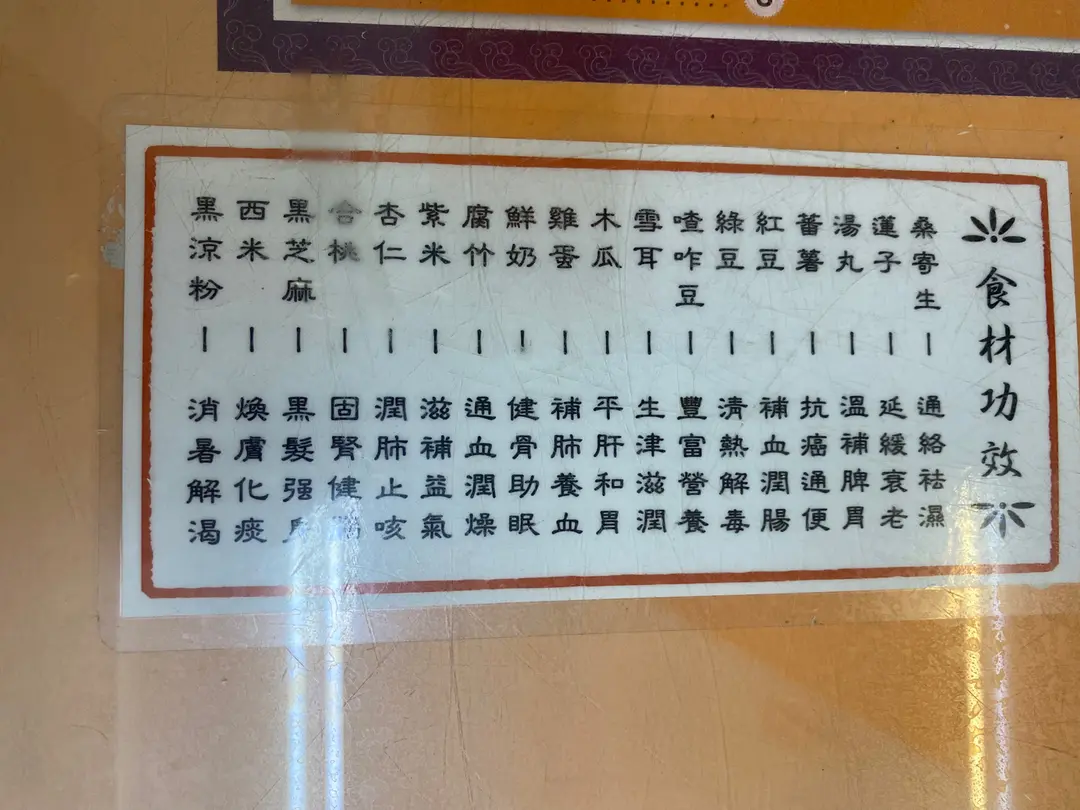 食材功效
桑寄生 — 通絡祛濕
蓮子 — 延緩衰老
湯丸 — 溫補脾胃
蕃薯 — 抗癌通便
紅豆 — 補血潤腸
綠豆 — 清熱解毒
喳咋豆 — 豐富營養
雪耳 — 生津滋潤
木瓜 — 平肝和胃
雞蛋 — 補肺養血
鮮奶 — 健骨助眠
腐竹 — 通血潤燥
紫米 — 滋補益氣
杏仁 — 潤肺止咳
合桃 — 固腎健腦
黑芝麻 — 黑髮强身
西米 — 煥膚化痰
黑涼粉 — 消暑解渴